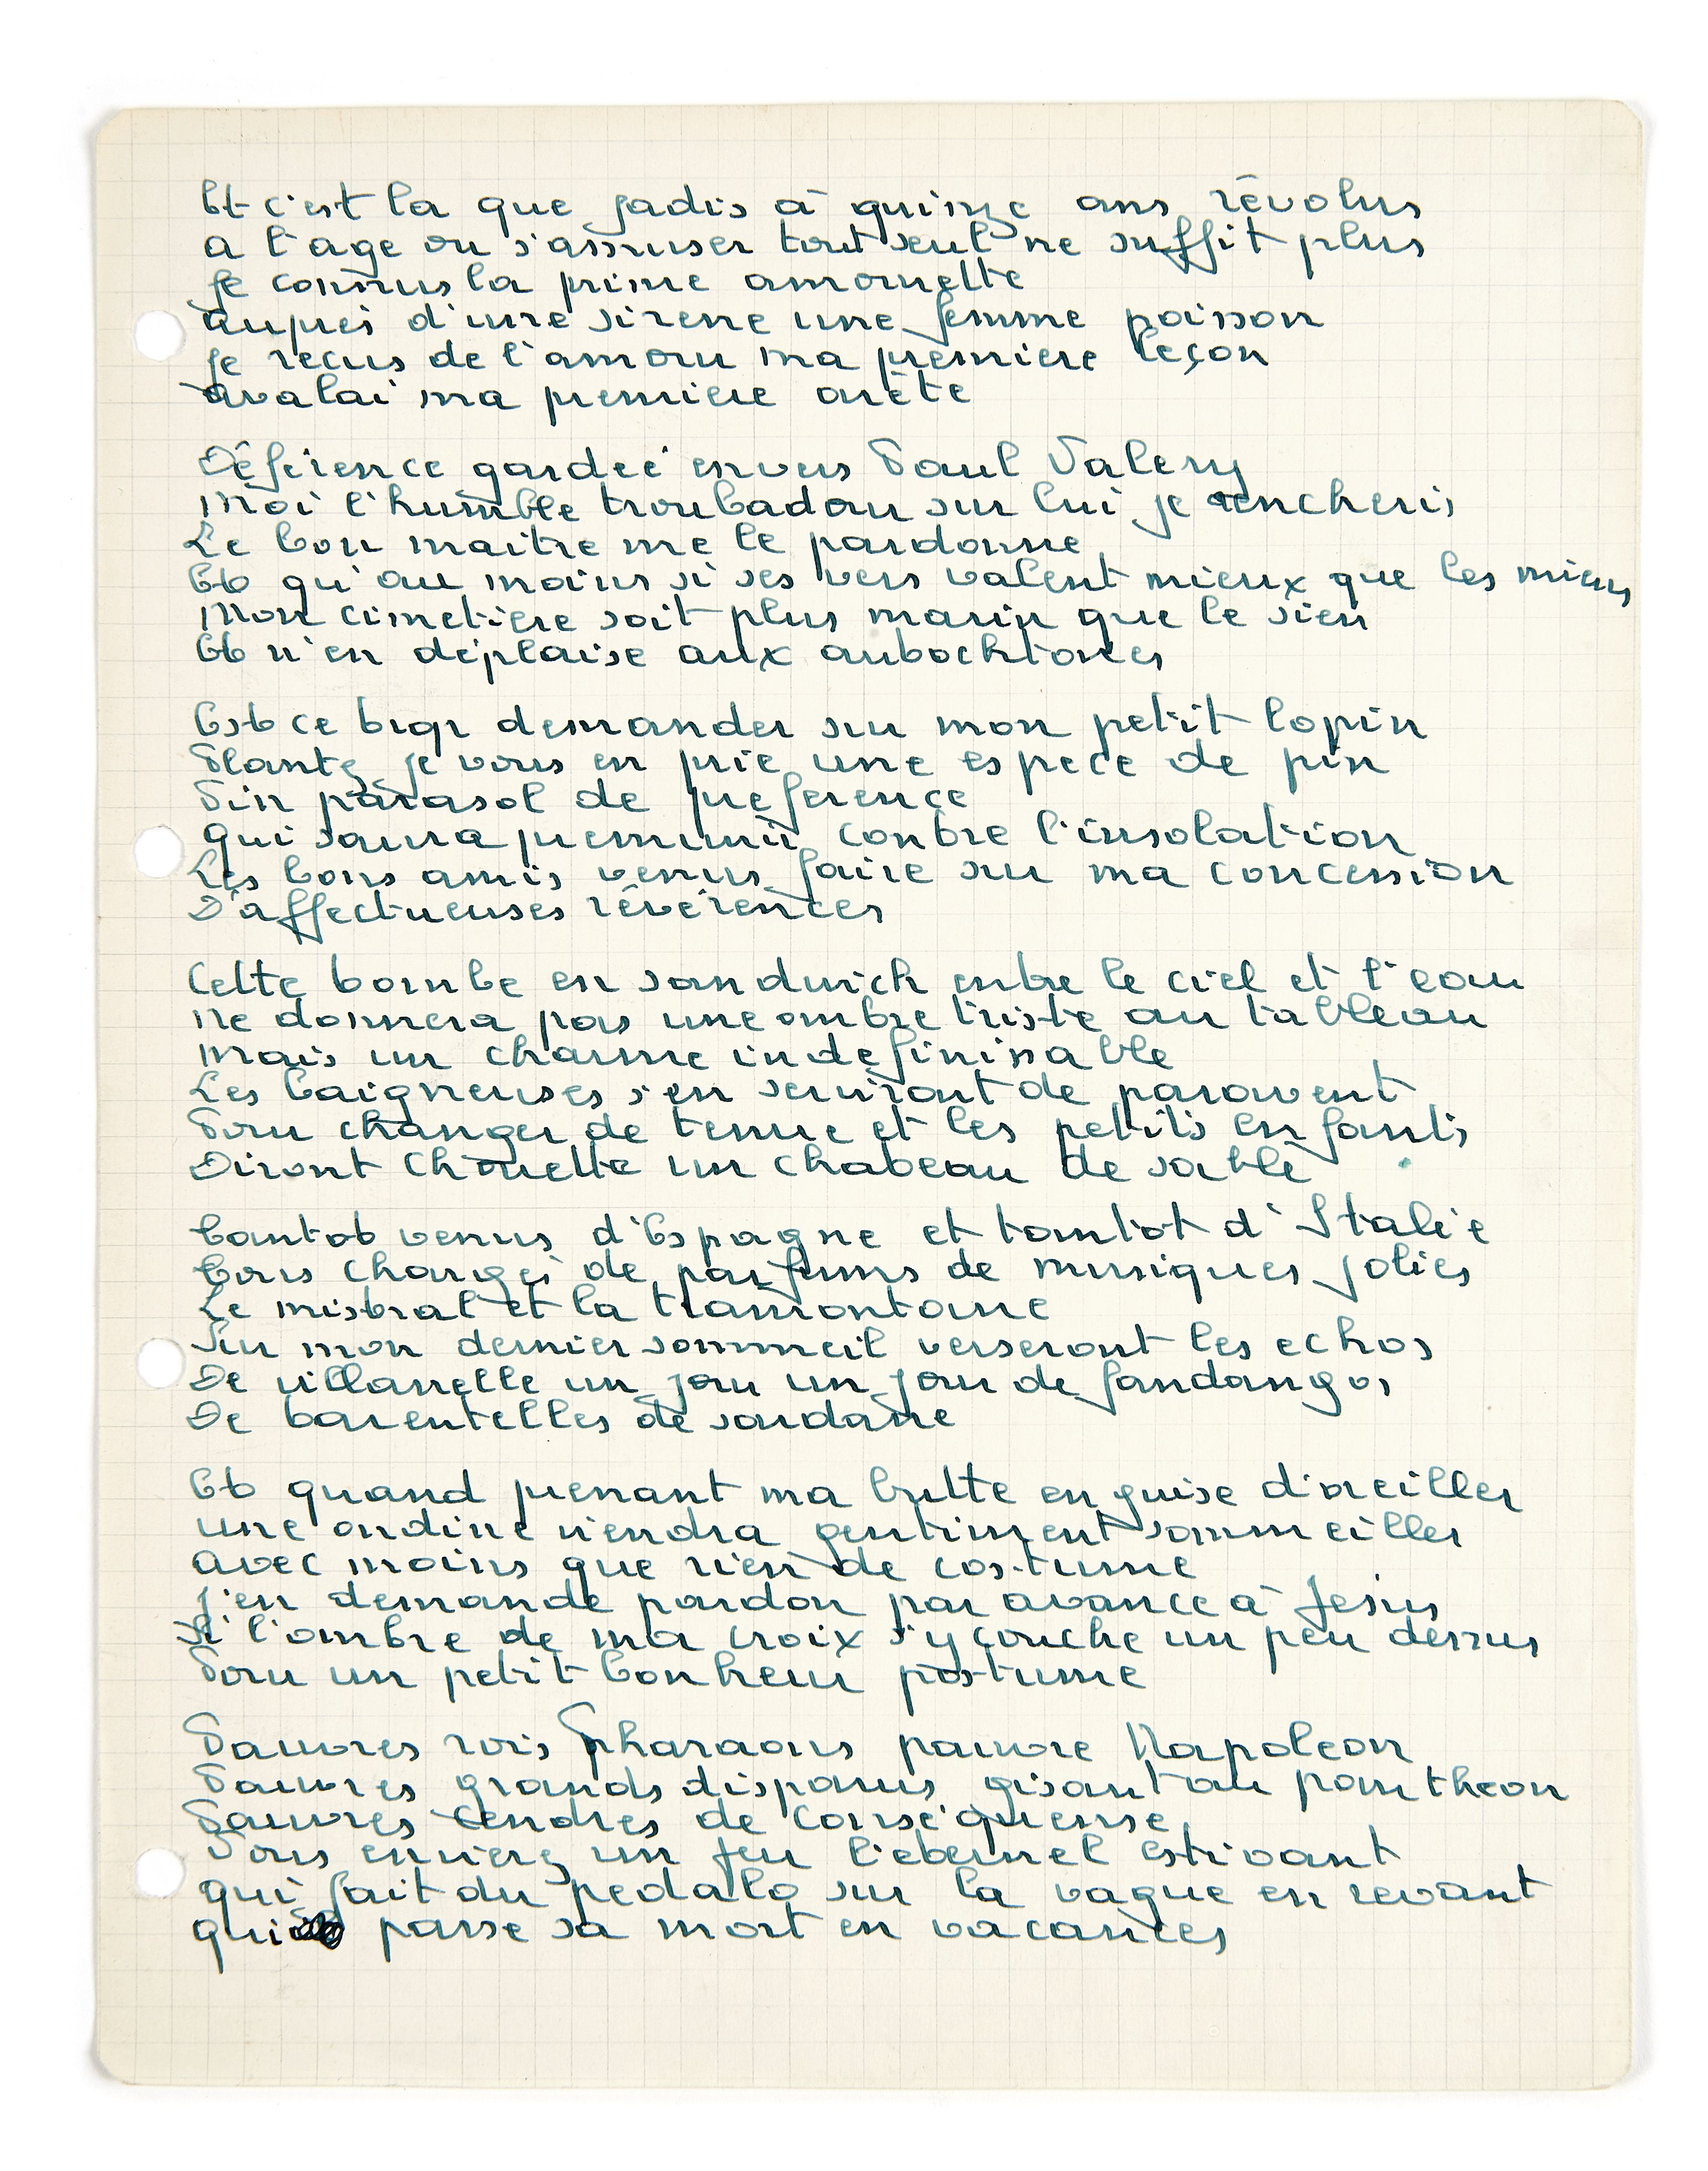 Et c'est la que jadis à quinze ans révolus
a l'age ou s'amuser tout seul ne suffit plus
Je connus la prime amourette
auprès d'une sirene une femme poisson
Je reçus de l'amour ma première leçon
avalai ma premiere arète
Déférence gardée envers Paul Valery
Moi l'humble troubadour sur lui je rencheris
Le bon maitre me le pardonne
Et qu'au moins si ses vers valent mieux que les miens
Mon cimetière soit plus marin que le sien
Et n'en déplaise aux autochtones
Est ce trop demander sur mon petit lopin
Plantez je vous en prie une espece de pin
Pin parasol de preference
qui saura premunir contre l'insolation
Les bons amis venus faire sur ma concession
D'affectueuses révérences
Cette tombe en sandwich entre le ciel et l'eau
ne donnera pas une ombre triste au tableau
Mais un charme indefinissable
Les baigneuses s'en serviront de paravent
Pour changer de tenue et les petits enfants
Diront chouette un chateau de sable
Tantot venus d'Espagne et tantot d'Italie
Tous chargés de parfums de musiques jolies
Le mistral et la tramontane
Sur mon dernier sommeil verseront les echos
De villanelle un jour un jour de fandangos
De tarentelles de sardane
Et quand prenant ma butte en guise d'oreiller
une ondine viendra gentiment sommeiller
avec moins que rien de costume
J'en demande pardon par avance à Jesus
Si l'ombre de ma croix s'y couche un peu dessus
Pour un petit bonheur postume
Pauvres rois Pharaons pauvre Napoleon
Pauvres grands disparus gisant au pantheon
Pauvres cendres de conséquense
Vous envierez un peu l'eternel estivant
qui fait du pedalo sur la vague en revant
qui passe sa mort en vacances